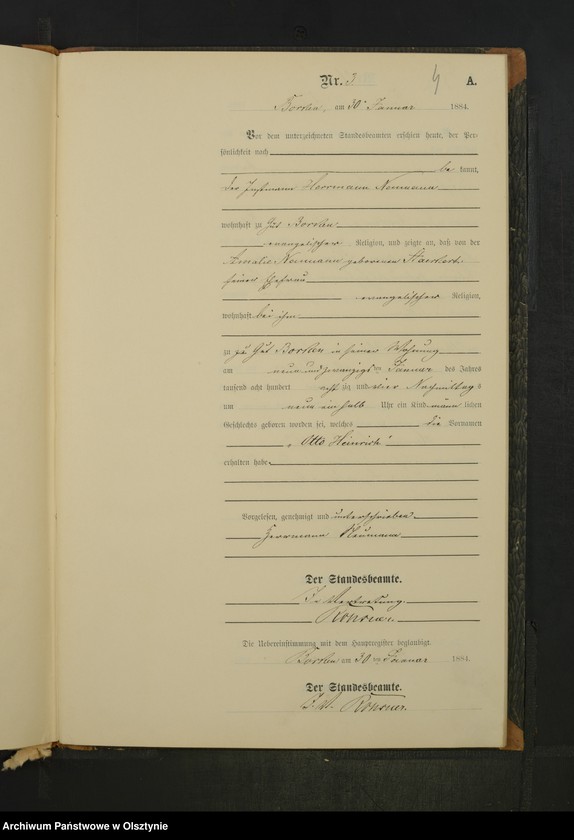 Nr. 3 4 A.
am 30 Januar 1884.
Vor dem unterzeichneten Standesbeamten erschien heute, der Per-
sönlichkeit nach
be kannt,
der Instmann Herrmann Neumann
wohnhaft zu Gut
evangelischer Religion, und zeigte an, daß von der
Amalie Neumann geborenen
seiner Ehefrau
evangelischer Religion,
wohnhaft bei ihm
zu Gut in seiner Wohnung
am neun und zwanzigsten Januar des Jahres
tausend acht hundert acht zig und vier Nachmittag s
um neun ein halb Uhr ein Kind männ lichen
Geschlechts geboren worden sei, welches die Vornamen
„Otto Heinrich“
erhalten habe.
Vorgelesen, genehmigt und unterschrieben
Herrmann Neumann
Der Standesbeamte.
In Vertretung.
Die Uebereinstimmung mit dem Hauptregister beglaubigt.
am 30 ten Januar 1884.
Der Standesbeamte.
I. V.
Archiwum Państwowe w Olsztynie